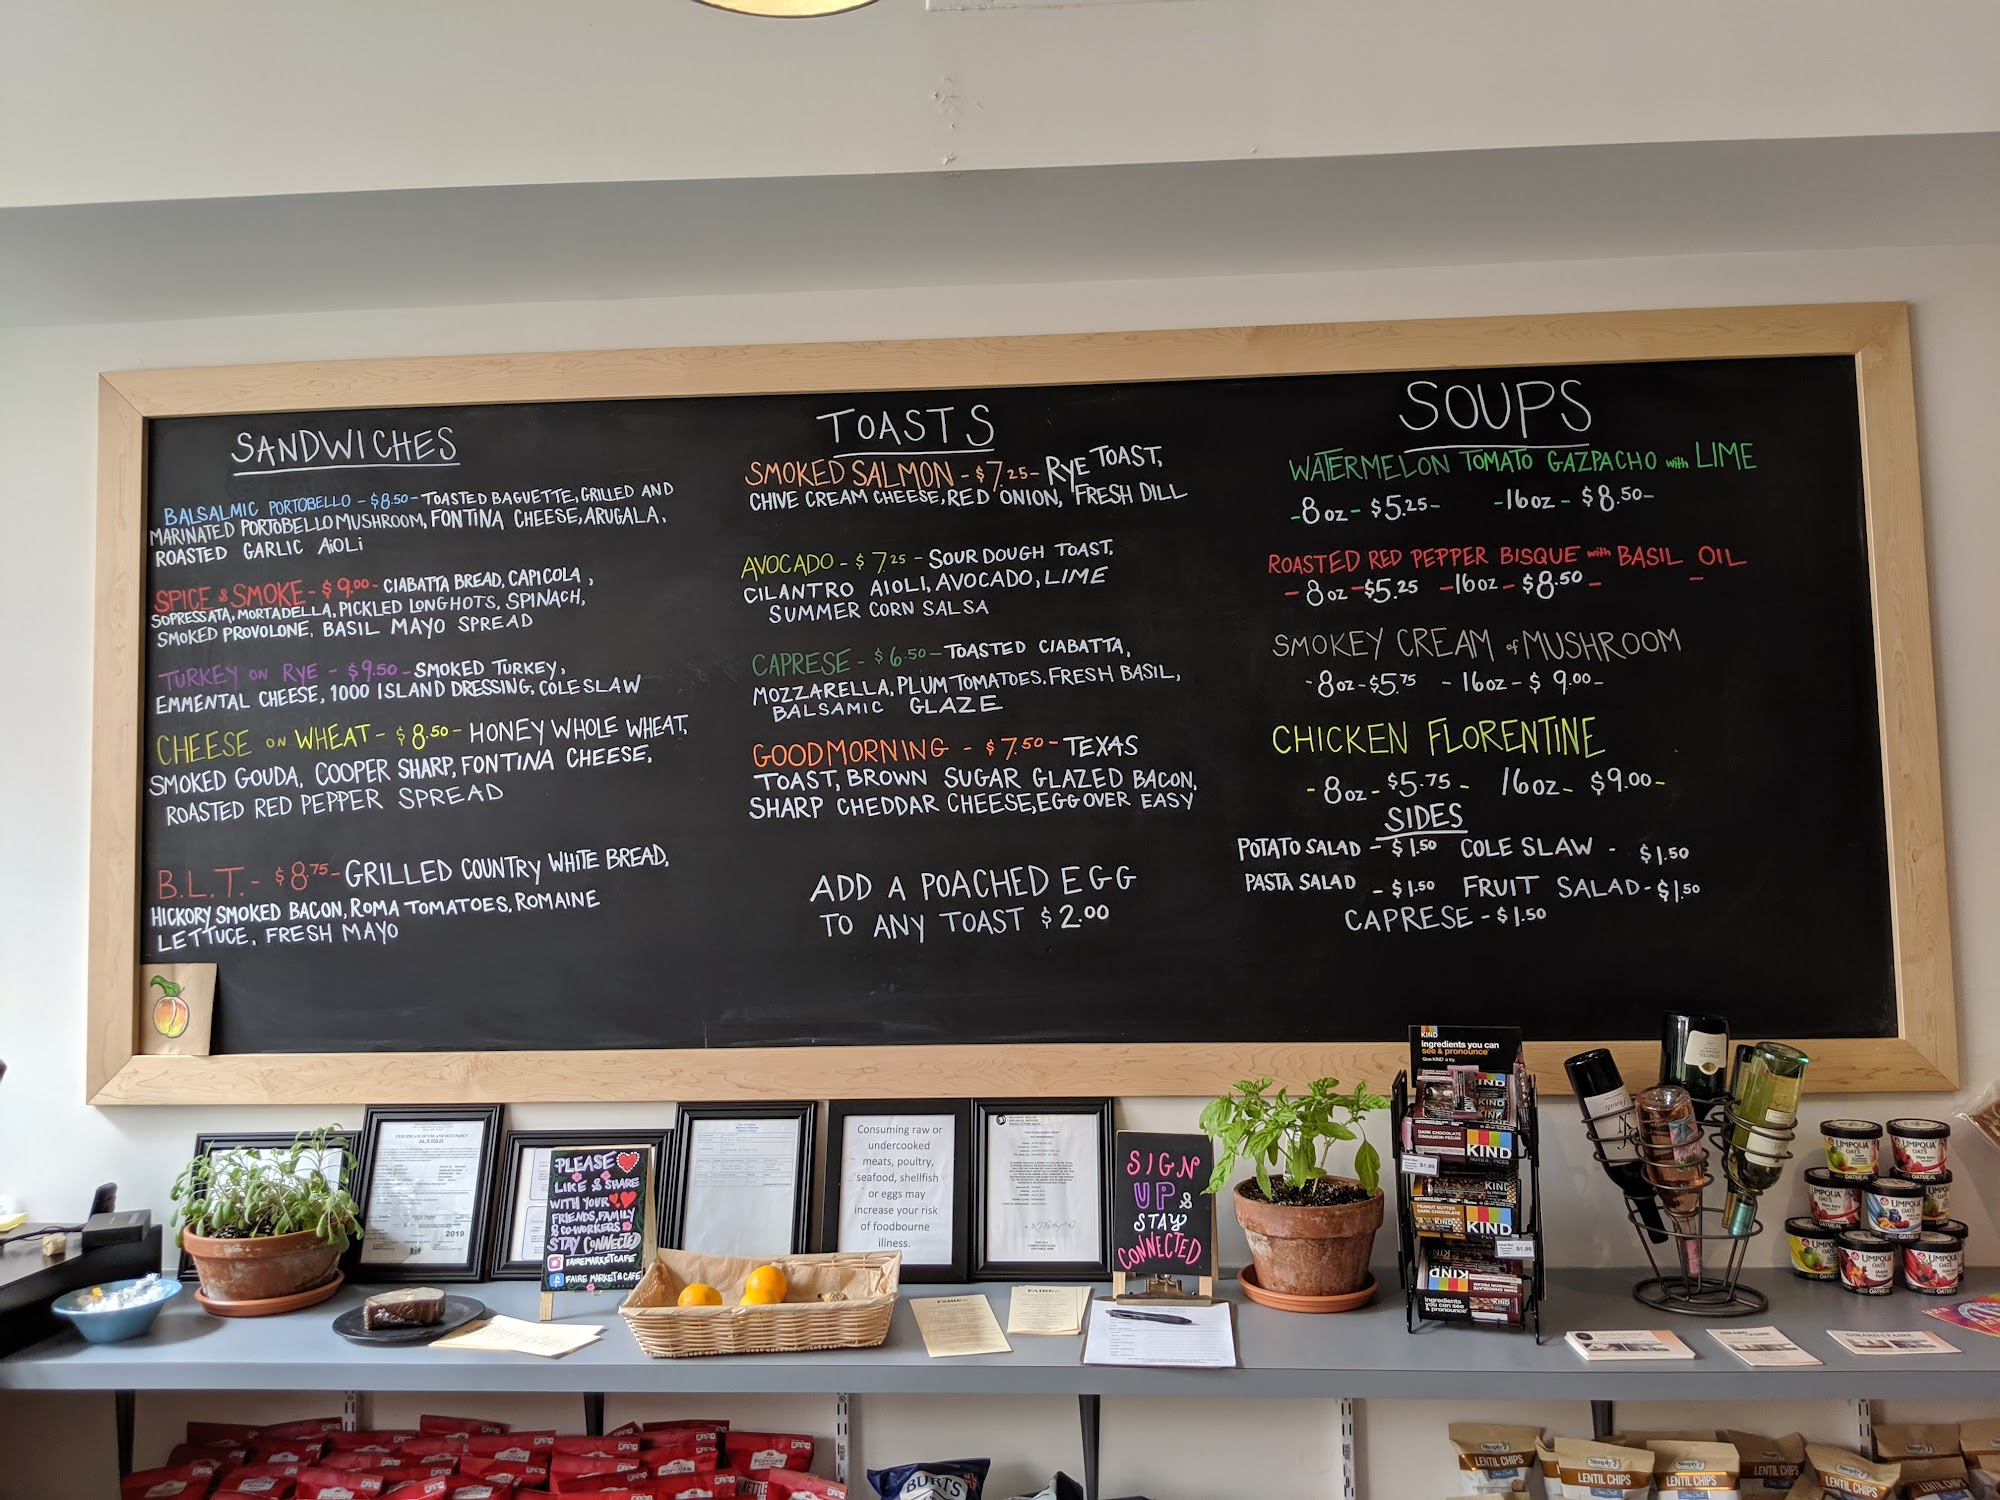 SANDWICHES
BALSALMIC PORTOBELLO - $8.50 - TOASTED BAGUETTE, GRILLED AND
MARINATED PORTOBELLO MUSHROOM, FONTINA CHEESE, ARUGALA,
ROASTED GARLIC AiOLi
SPICE & SMOKE - $9.00 - CIABATTA BREAD, CAPICOLA,
SOPRESSATA, MORTADELLA, PICKLED LONGHOTS, SPINACH,
SMOKED PROVOLONE, BASIL MAYO SPREAD
TURKEY ON RYE - $9.50 - SMOKED TURKEY,
EMMENTAL CHEESE, 1000 ISLAND DRESSING, COLE SLAW
CHEESE ON WHEAT - $8.50 - HONEY WHOLE WHEAT,
SMOKED GOUDA, COOPER SHARP, FONTINA CHEESE,
ROASTED RED PEPPER SPREAD
B.L.T. - $8.75 - GRILLED COUNTRY WHITE BREAD,
HICKORY SMOKED BACON, ROMA TOMATOES, ROMAINE
LETTUCE, FRESH MAYO
TOASTS
SMOKED SALMON - $7.25 - RYE TOAST,
CHIVE CREAM CHEESE, RED ONION, FRESH DILL
AVOCADO - $7.25 - SOUR DOUGH TOAST,
CILANTRO AIOLI, AVOCADO, LIME
SUMMER CORN SALSA
CAPRESE - $6.50 - TOASTED CIABATTA,
MOZZARELLA, PLUM TOMATOES. FRESH BASIL,
BALSAMIC GLAZE
GOODMORNING - $7.50 - TEXAS
TOAST, BROWN SUGAR GLAZED BACON,
SHARP CHEDDAR CHEESE, EGG OVER EASY
ADD A POACHED EGG
TO ANY TOAST $2.00
SOUPS
WATERMELON TOMATO GAZPACHO with LIME
- 8oz - $5.25 - - 16oz - $8.50 -
ROASTED RED PEPPER BISQUE with BASIL OIL
- 8oz - $5.25 - 16oz - $8.50 - -
SMOKEY CREAM of MUSHROOM
- 8oz - $5.75 - 16oz - $9.00 -
CHICKEN FLORENTINE
- 8oz - $5.75 - 16oz - $9.00 -
SIDES
POTATO SALAD - $1.50 COLE SLAW - $1.50
PASTA SALAD - $1.50 FRUIT SALAD - $1.50
CAPRESE - $1.50
CERTIFICATE OF USE AND OCCUPANCY
2019
PLEASE
LIKE & SHARE
WITH YOUR
FRIENDS, FAMILY
& CO-WORKERS
STAY CONNECTED
FAIREMARKETCAFE
FAIRE MARKET & CAFE
Consuming raw or
undercooked
meats, poultry,
seafood, shellfish
or eggs may
increase your risk
of foodbourne
illness.
SIGN
UP &
STAY
CONNECTED
FAIRE
KIND
ingredients you can
see & pronounce
KIND
DARK CHOCOLATE
CINNAMON PECAN
KIND
$1.99
KIND
PEANUT BUTTER
DARK CHOCOLATE
KIND
$1.99
KIND
ingredients you can
see & pronounce
UMPQUA
OATS
UMPQUA
OATS
OATMEAL
UMPQUA
OATS
GIRARD & FAIRE
POPCORN
BURTS
Simply7
LENTIL CHIPS
Sea Salt
Simply7
LENTIL CHIPS
LENTIL CHIPS
Sea Salt
LENTIL CHIPS
LENTIL CHIPS